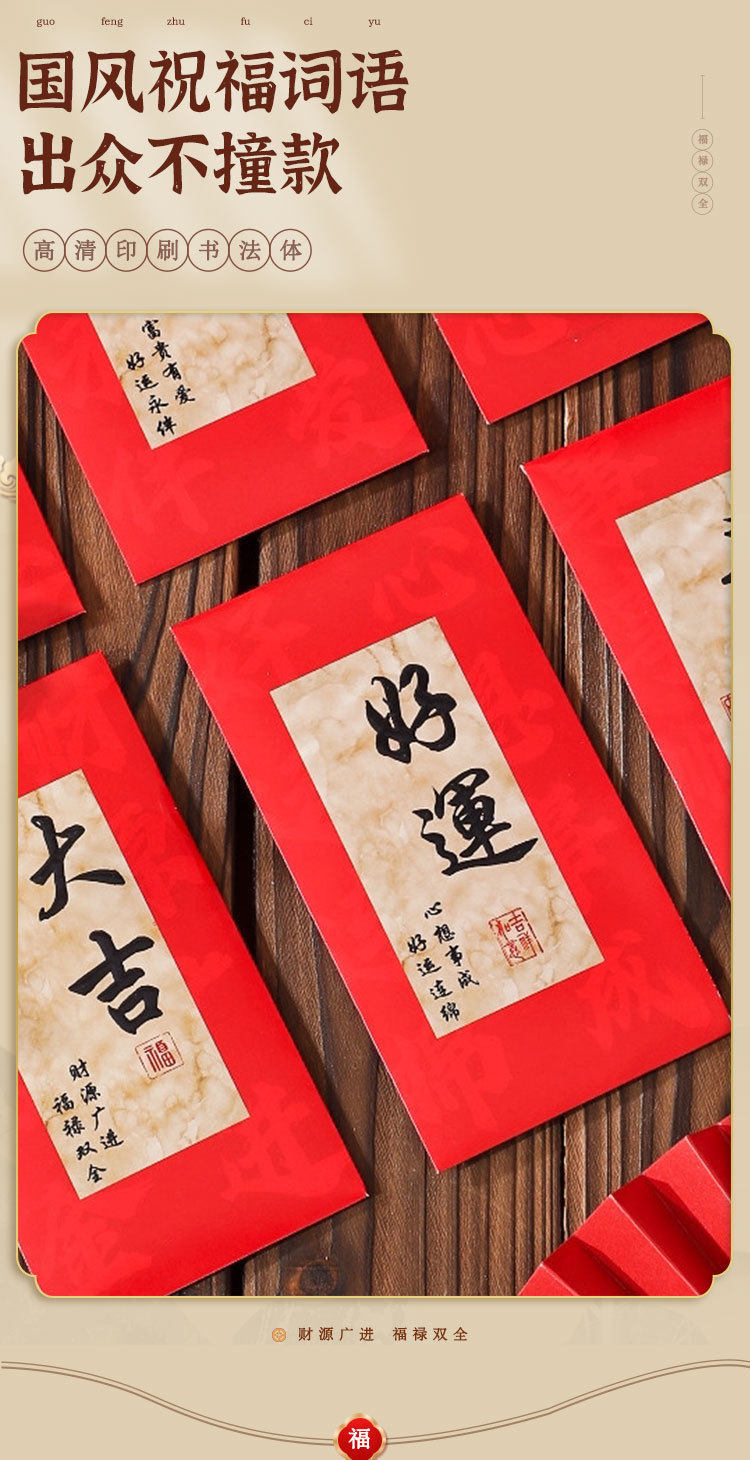 guo feng zhu fu ci yu
国风祝福词语
出众不撞款
高清印刷书法体
福禄双全
富贵有爱
好运永伴
好運
心想事成
好运连绵
大吉
福
财源广进
福禄双全
财源广进 福禄双全
福